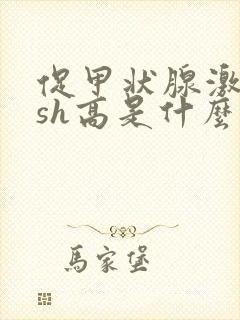 促甲状腺激
sh高是什麼
馬家堡